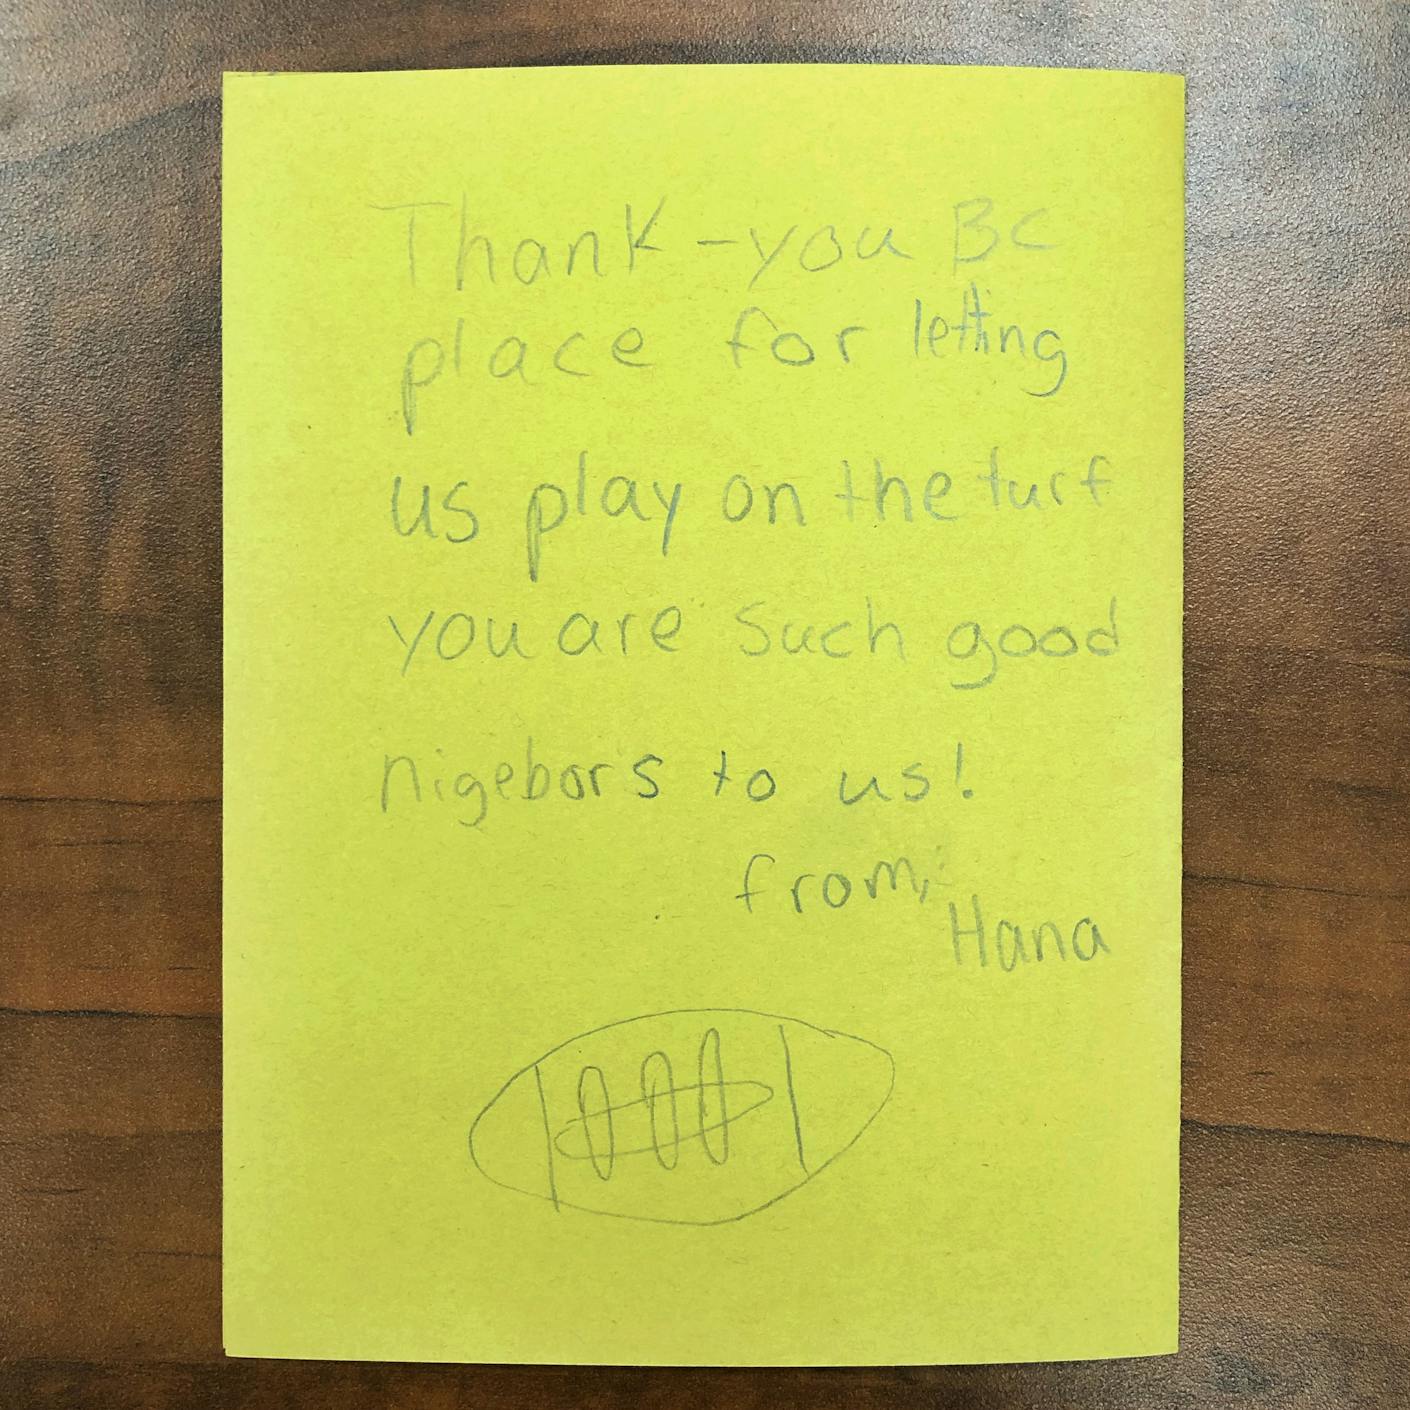 Thank-you BC
place for letting
us play on the turf
you are such good
nigebors to us!
from,
Hana